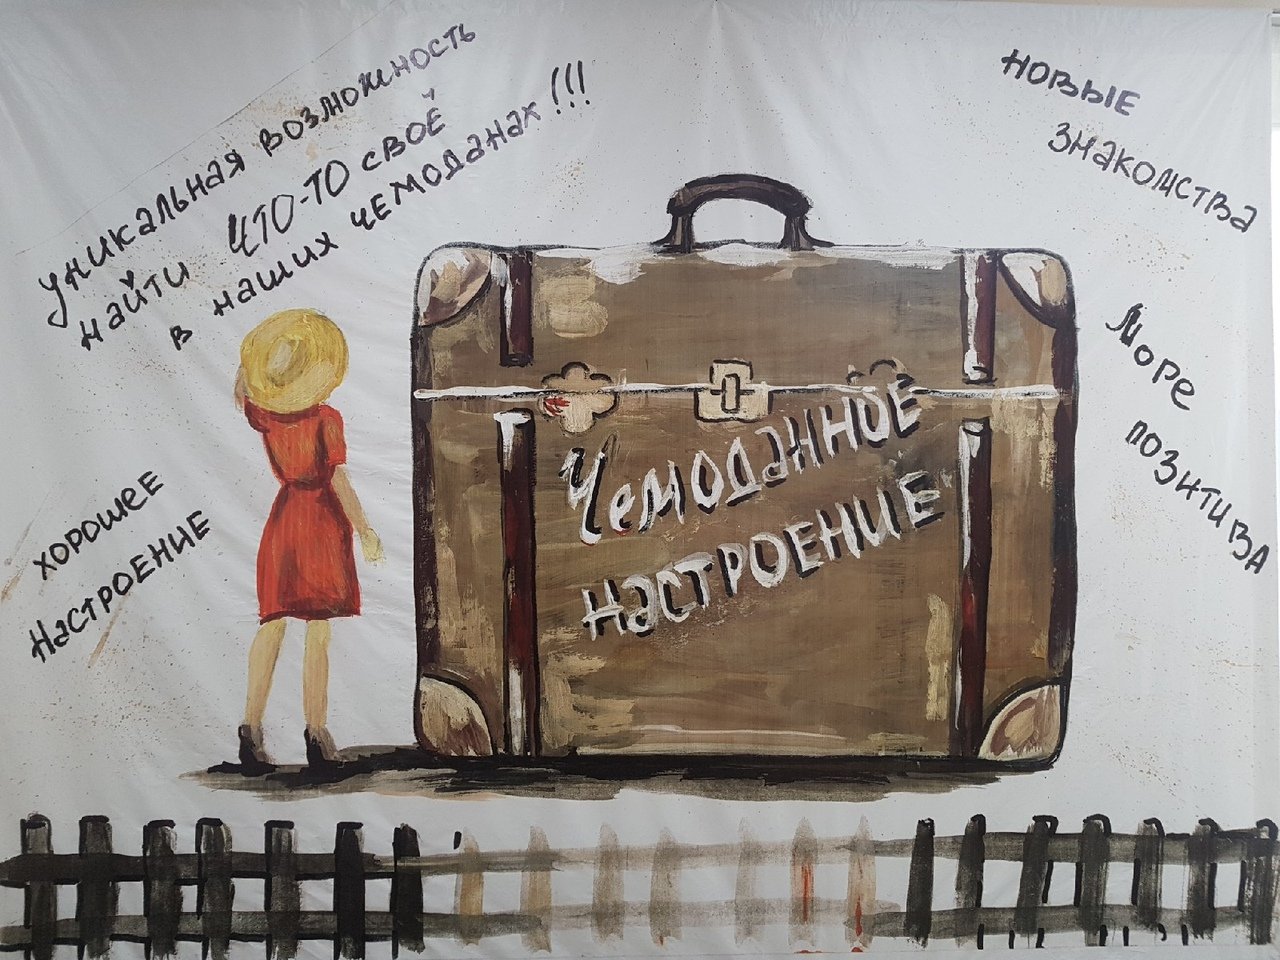 уникальная возможность
найти что-то своё
в наших чемоданах!!!
новые
знакомства
Море
позитива
Чемоданное
настроение
хорошее
настроение